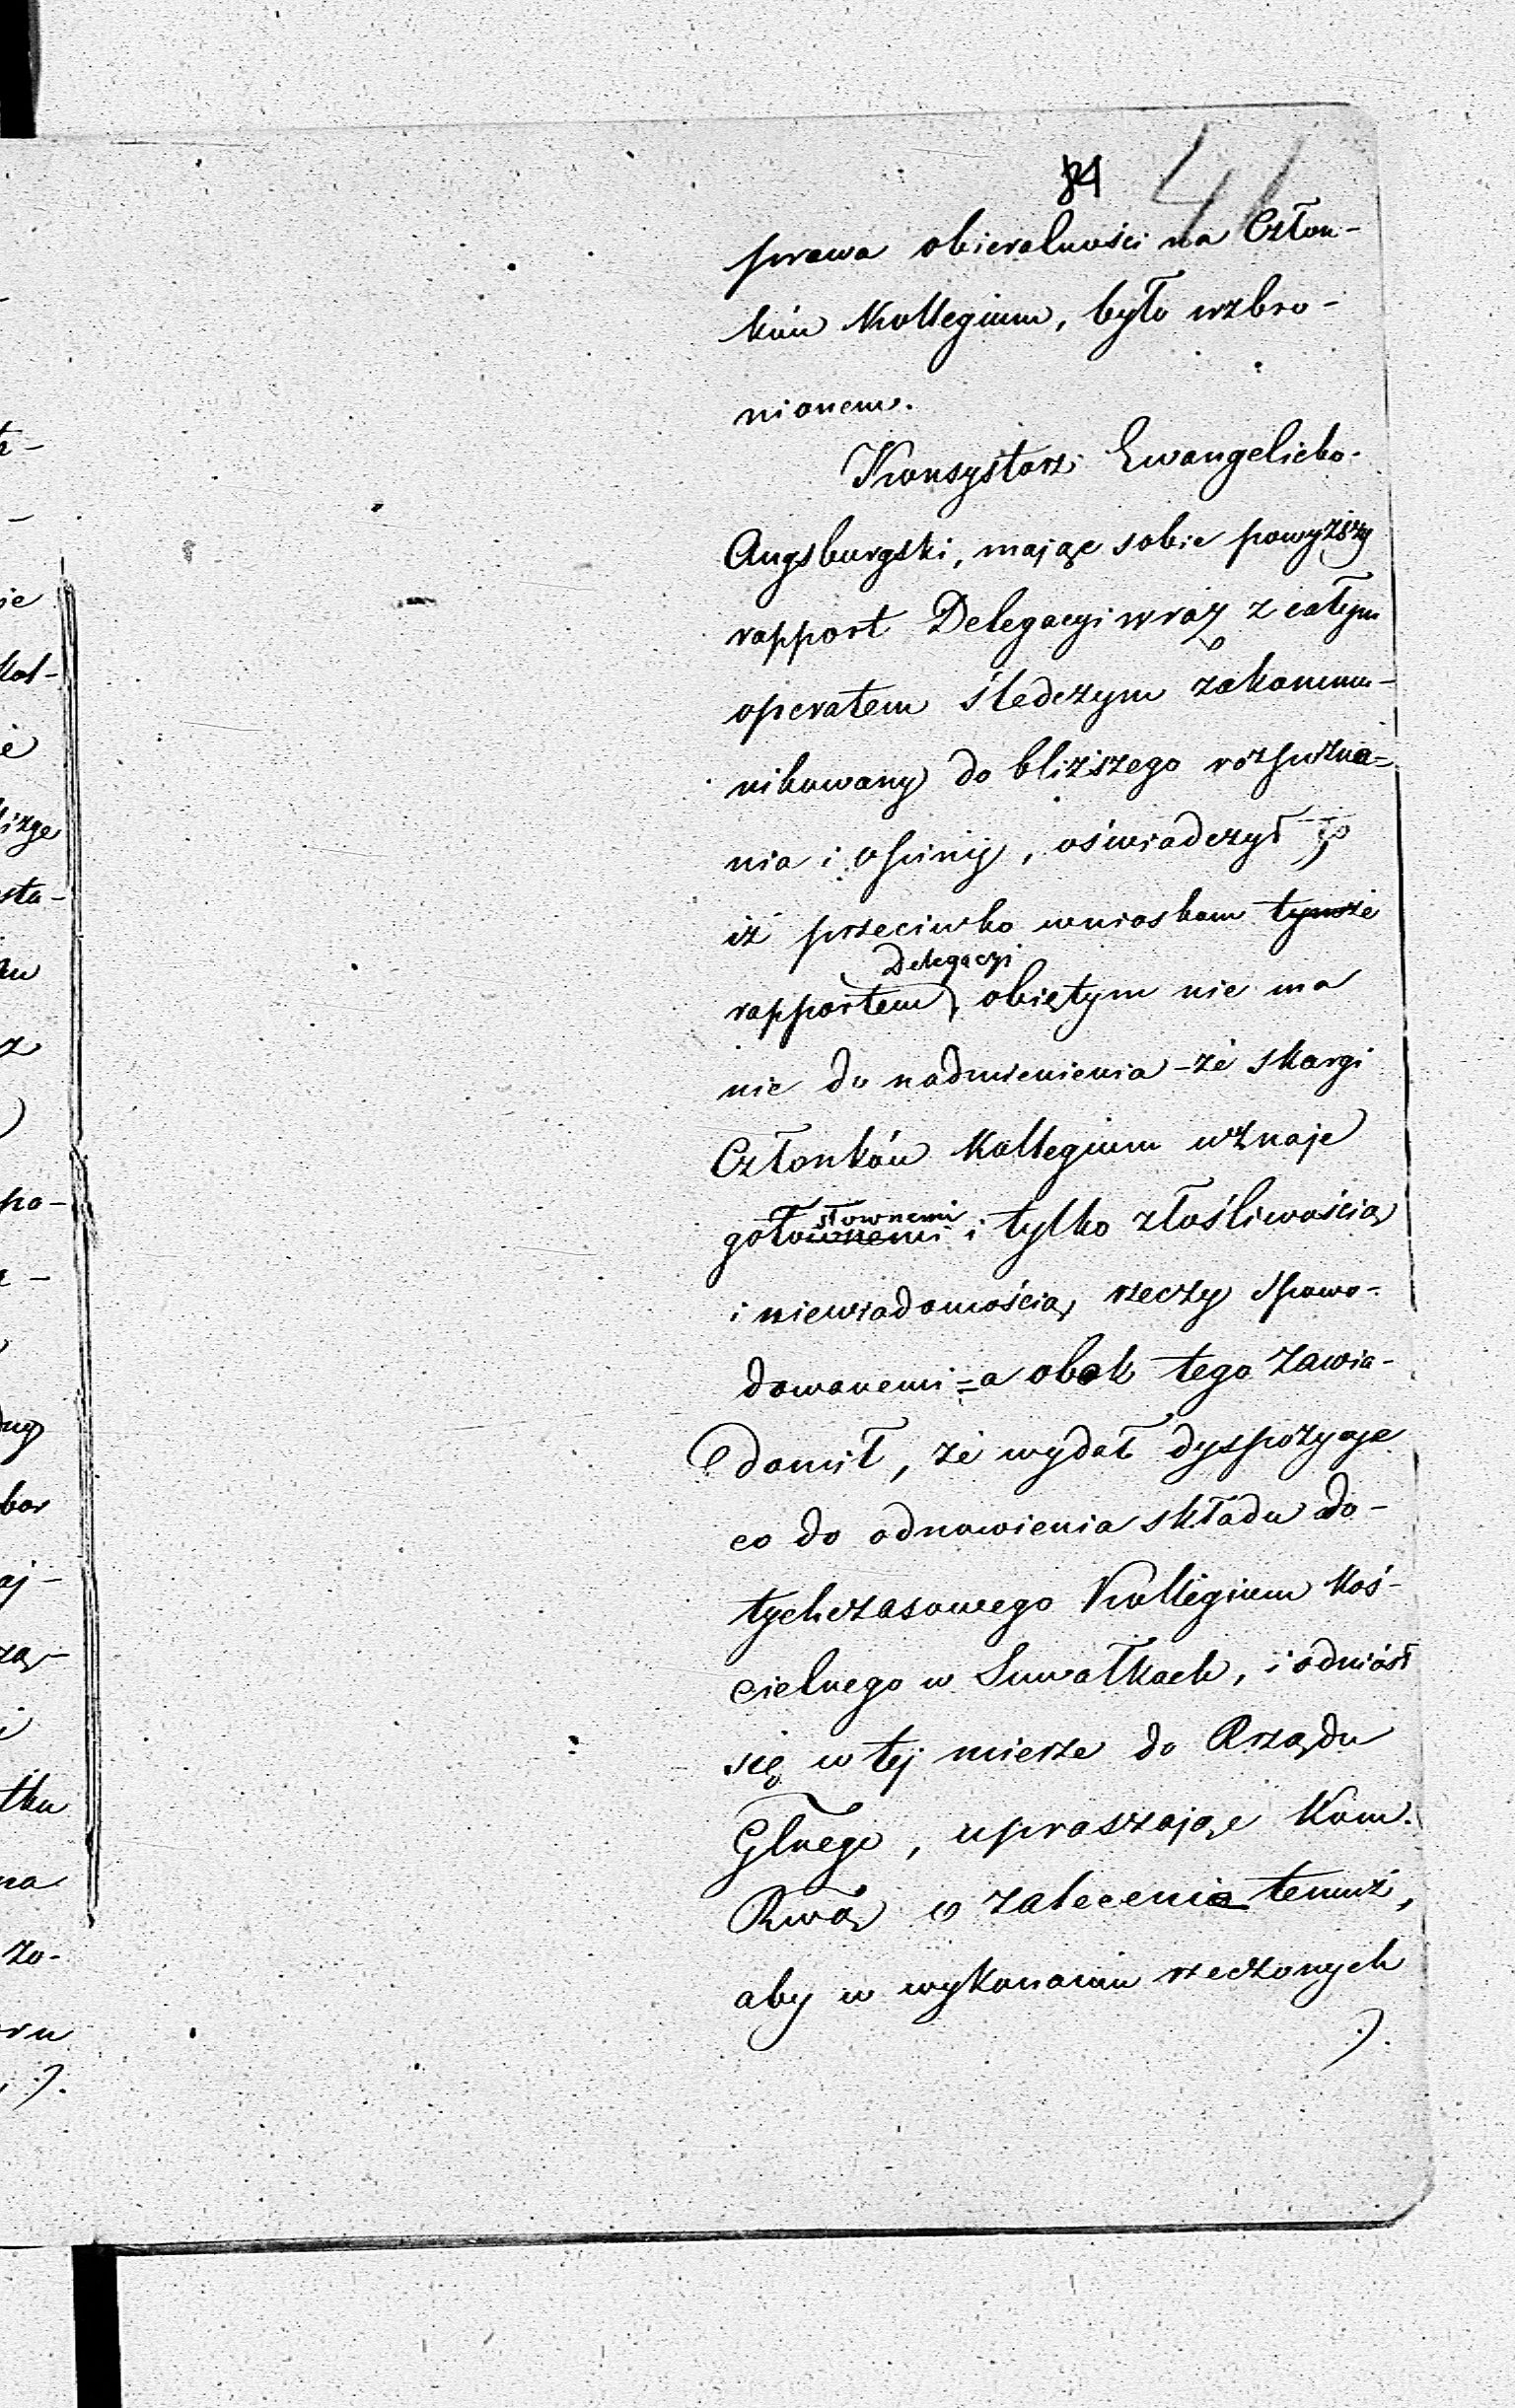 84 41
prawa obieralności na Człon-
ków Kollegium, było wzbro-
nionem.
Konsystorz Ewangelicko-
Augsburgski, mając sobie powyższy
rapport Delegacyi wraz z całym
operatem śledczym zakommu-
nikowany do bliższego rozpozna=
nia i opinij, oświadczył
iż przeciwko wnioskom tymże
Delegacyi
rapportem objętym nie ma
nic do nadmienienia - że skargi
Członków Kollegium uznaje
słownemi
gołownemi i tylko złośliwością
i niewiadomością rzeczy spowo-
dowanemi = a obok tego zawia-
domił, że wydał dyspozycje
co do odnowienia składu do-
tychczasowego Kollegium Koś-
cielnego w Suwałkach, i odniósł
się w tej mierze do Rządu
Głnego, upraszając Kom.
Rwą o zalecenie temuż,
aby w wykonaniu rzeczonych
ie
Kol-
sta-
po-
bor
aj-
tku
na
zo-